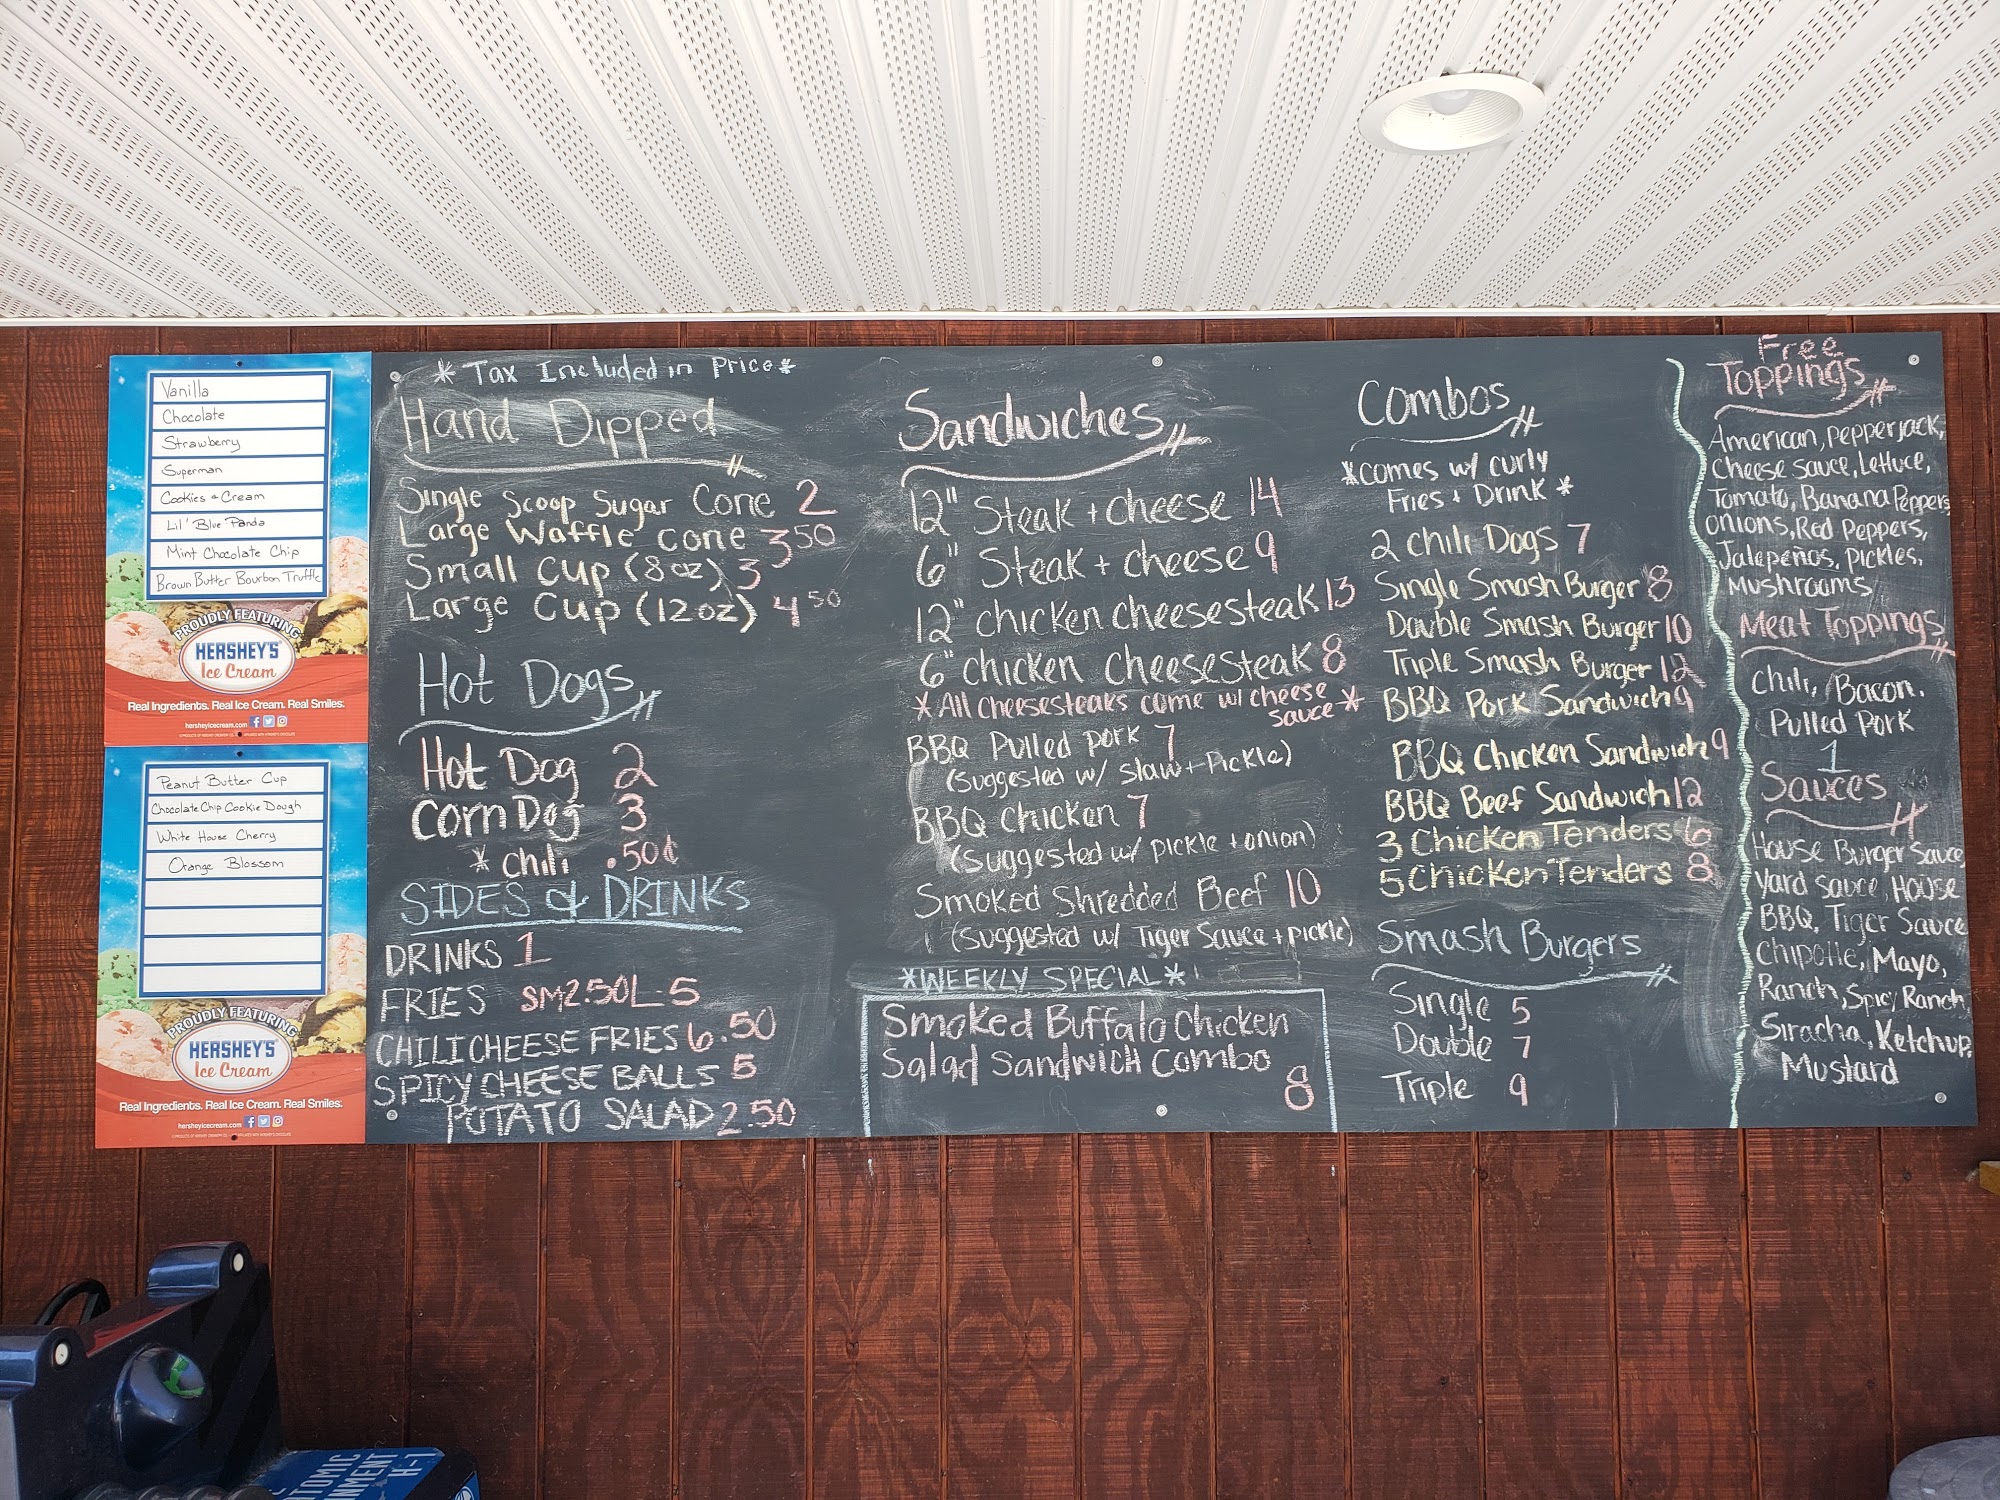 Vanilla
Chocolate
Strawberry
Superman
Cookies & Cream
Lil' Blue Panda
Mint Chocolate Chip
Brown Butter Bourbon Truffle
PROUDLY FEATURING
HERSHEY'S
Ice Cream
Real Ingredients. Real Ice Cream. Real Smiles.
hersheyicecream.com
Peanut Butter Cup
Chocolate Chip Cookie Dough
White House Cherry
Orange Blossom
PROUDLY FEATURING
HERSHEY'S
Ice Cream
Real Ingredients. Real Ice Cream. Real Smiles.
hersheyicecream.com
* Tax Included in Price *
Hand Dipped
Single Scoop Sugar Cone 2
Large Waffle Cone 3 50
Small Cup (8oz) 3
Large Cup (12oz) 4 50
Hot Dogs
Hot Dog 2
Corn Dog 3
* Chili .50¢
SIDES & DRINKS
DRINKS 1
FRIES SM 2.50 L-5
CHILI CHEESE FRIES 6.50
SPICY CHEESE BALLS 5
POTATO SALAD 2.50
Sandwiches
12" Steak + Cheese 14
6" Steak + cheese 9
12" chicken cheesesteak 13
6" chicken cheesesteak 8
* All cheesesteaks come w/ cheese
sauce *
BBQ Pulled pork 7
(Suggested w/ Slaw + Pickle)
BBQ Chicken 7
(Suggested w/ pickle + onion)
Smoked Shredded Beef 10
(Suggested w/ Tiger Sauce + pickle)
*WEEKLY SPECIAL*
Smoked Buffalo Chicken
Salad Sandwich Combo
8
Combos
*comes w/ curly
Fries + Drink *
2 Chili Dogs 7
Single Smash Burger 8
Double Smash Burger 10
Triple Smash Burger 12
BBQ Pork Sandwich 9
BBQ Chicken Sandwich 9
BBQ Beef Sandwich 12
3 Chicken Tenders 6
5 Chicken Tenders 8
Smash Burgers
Single 5
Double 7
Triple 9
Free
Toppings
American, Pepperjack,
Cheese sauce, Lettuce,
Tomato, Banana Peppers
onions, Red Peppers,
Jalepeños, Pickles,
Mushrooms
Meat Toppings
Chili, Bacon,
Pulled Pork
1
Sauces
House Burger Sauce
Yard Sauce, House
BBQ, Tiger Sauce
Chipotle, Mayo,
Ranch, Spicy Ranch,
Siracha, Ketchup,
Mustard